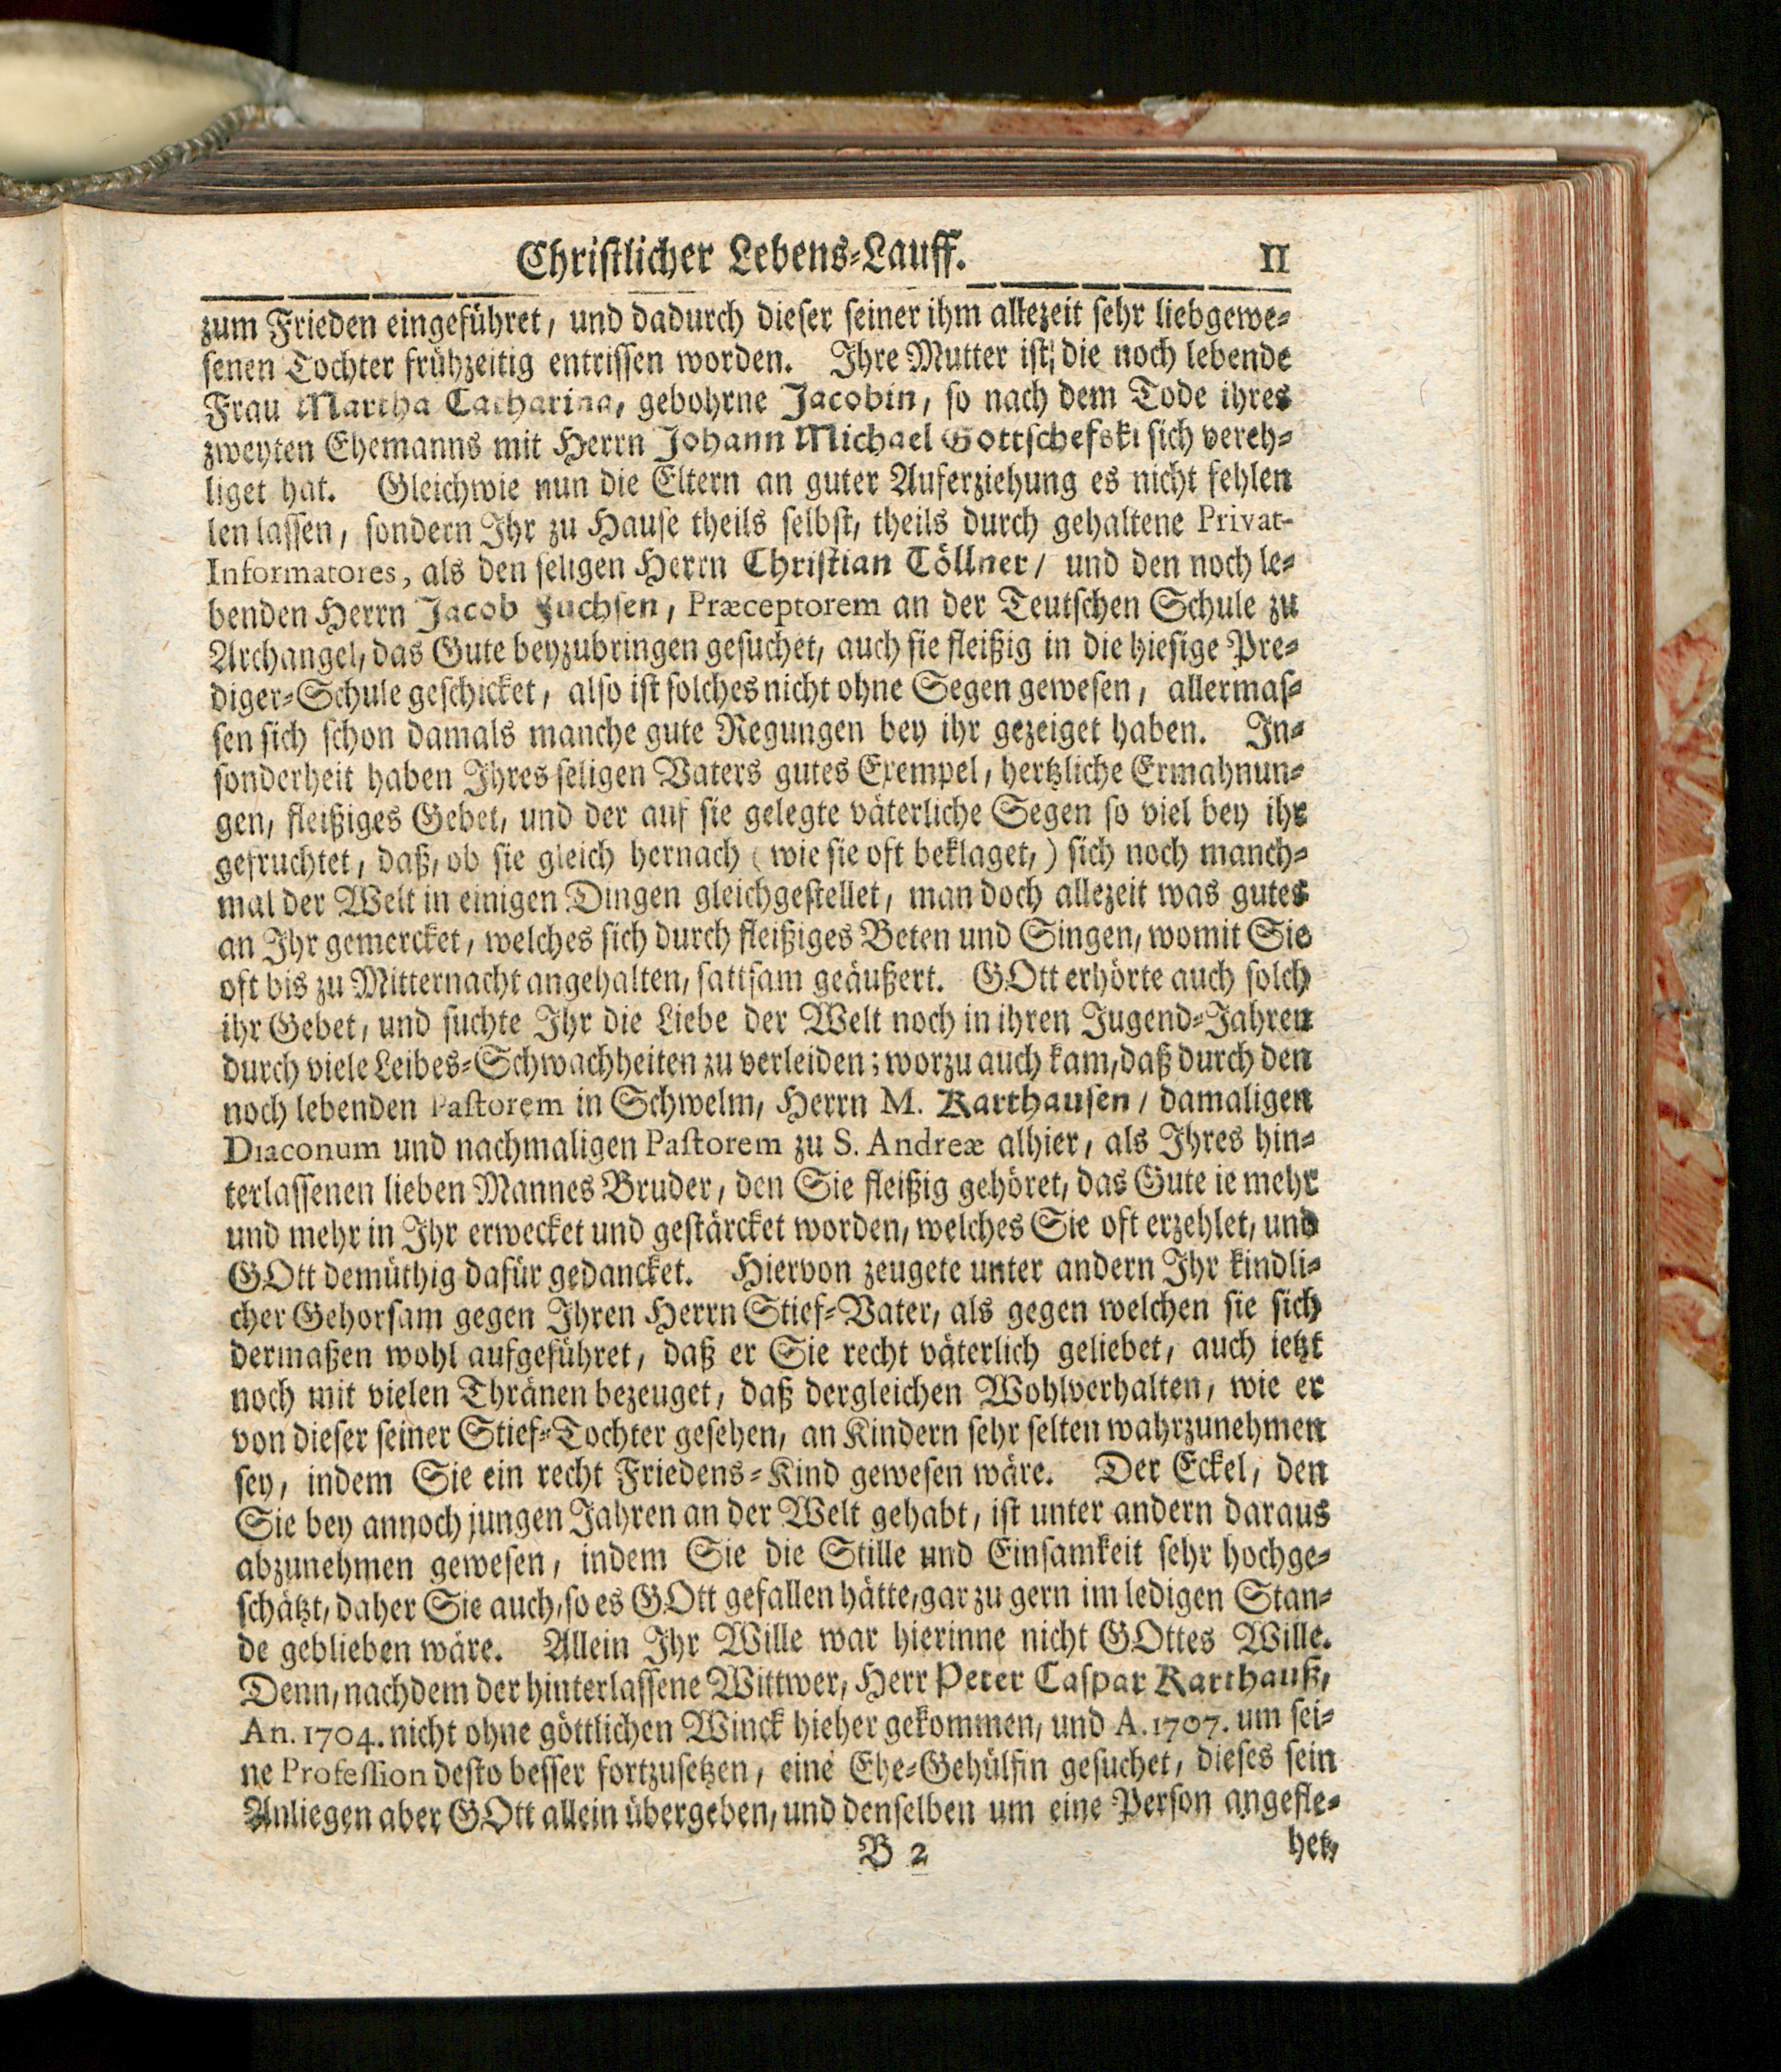 Christlicher Lebens-Lauff. 11
zum Frieden eingeführet, und dadurch dieser seiner ihm allezeit sehr liebgewe-
senen Tochter frühzeitig entrissen worden. Ihre Mutter ist, die noch lebende
Frau Martha Catharina, gebohrne Jacobin, so nach dem Tode ihres
zweyten Ehemanns mit Herrn Johann Michael Gottschefski sich vereh-
liget hat. Gleichwie nun die Eltern an guter Auferziehung es nicht fehlen
len lassen, sondern Ihr zu Hause theils selbst, theils durch gehaltene Privat-
Informatores, als den seligen Herrn Christian Töllner/ und den noch le-
benden Herrn Jacob Fuchsen, Præceptorem an der Teutschen Schule zu
Archangel, das Gute beyzubringen gesuchet, auch sie fleißig in die hiesige Pre-
diger-Schule geschicket, also ist solches nicht ohne Segen gewesen, allermas-
sen sich schon damals manche gute Regungen bey ihr gezeiget haben. In-
sonderheit haben Ihres seligen Vaters gutes Exempel, hertzliche Ermahnun-
gen, fleißiges Gebet, und der auf sie gelegte väterliche Segen so viel bey ihr
gefruchtet, daß, ob sie gleich hernach (wie sie oft beklaget,) sich noch manch-
mal der Welt in einigen Dingen gleichgestellet, man doch allezeit was gutes
an Ihr gemercket, welches sich durch fleißiges Beten und Singen, womit Sie
oft bis zu Mitternacht angehalten, sattsam geäußert. GOtt erhörte auch solch
ihr Gebet, und suchte Ihr die Liebe der Welt noch in ihren Jugend-Jahren
durch viele Leibes-Schwachheiten zu verleiden; worzu auch kam, daß durch den
noch lebenden Pastorem in Schwelm, Herrn M. Karthausen/ damaligen
Diaconum und nachmaligen Pastorem zu S. Andreæ alhier, als Ihres hin-
terlassenen lieben Mannes Bruder, den Sie fleißig gehöret, das Gute ie mehr
und mehr in Ihr erwecket und gestärcket worden, welches Sie oft erzehlet, und
GOtt demüthig dafür gedancket. Hiervon zeugete unter andern Ihr kindli-
cher Gehorsam gegen Ihren Herrn Stief-Vater, als gegen welchen sie sich
dermaßen wohl aufgeführet, daß er Sie recht väterlich geliebet, auch ietzt
noch mit vielen Thränen bezeuget, daß dergleichen Wohlverhalten, wie er
von dieser seiner Stief-Tochter gesehen, an Kindern sehr selten wahrzunehmen
sey, indem Sie ein recht Friedens-Kind gewesen wäre. Der Eckel, den
Sie bey annoch jungen Jahren an der Welt gehabt, ist unter andern daraus
abzunehmen gewesen, indem Sie die Stille und Einsamkeit sehr hochge-
schätzt, daher Sie auch, so es GOtt gefallen hätte, gar zu gern im ledigen Stan-
de geblieben wäre. Allein Ihr Wille war hierinne nicht GOttes Wille.
Denn, nachdem der hinterlassene Wittwer, Herr Peter Caspar Karthauß,
An. 1704. nicht ohne göttlichen Winck hieher gekommen, und A. 1707. um sei-
ne Profession desto besser fortzusetzen, eine Ehe-Gehülfin gesuchet, dieses sein
Anliegen aber GOtt allein übergeben, und denselben um eine Person angefle-
B 2 het,